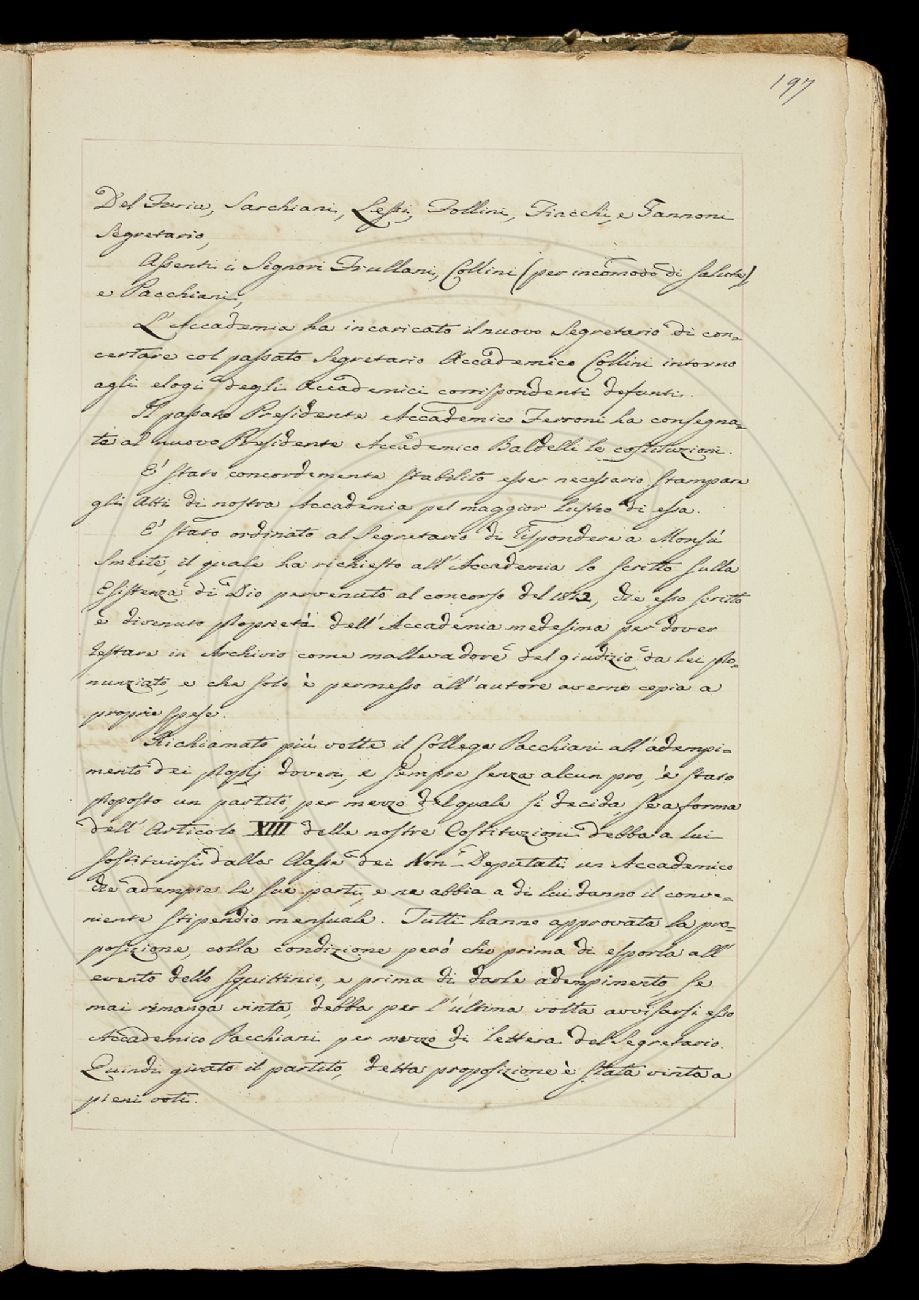 197
Del Furia, Sarchiani, Lessi, Follini, Fiacchi, e Zannoni
Segretario,
Assenti i Signori Frullani, Collini (per incomodo di salute)
e Pacchiani,
L'Accademia ha incaricato il nuovo Segretario di con-
certare col passato Segretario Accademico Collini intorno
agli elogi degli Accademici corrispondenti defunti.
Il passato Presidente Accademico Ferroni ha consegna-
te al nuovo Presidente Accademico Baldelli le costituzioni.
E' stato concordemente stabilito esser necessario stampare
gli Atti di nostra Accademia pel maggior lustro di essa.
E' stato ordinato al Segretario di rispondere a Monsù
il quale ha richiesto all'Accademia lo scritto sulla
Esistenza di Dio pervenuto al concorso del che esso scritto
è divenuto proprietà dell'Accademia medesima per dover
restare in Archivio come mallevadore del giudizio da lei pro-
nunziato, e che solo è permesso all'autore averne copia a
proprie spese.
Richiamato più volte il Collega Pacchiani all'adempi-
mento dei proprj doveri, e sempre senza alcun pro, è stato
proposto un partito, per mezzo del quale si decida se a forma
dell'Articolo XIII delle nostre Costituzioni debba a lui
sostituirsi dalla Classe dei Non-Deputati un Accademico
che adempia le sue parti, e ne abbia a di lui danno il conve-
niente stipendio mensuale. Tutti hanno approvata la pro-
posizione, colla condizione però che prima di esporla all'
evento dello squittinio, e prima di darle adempimento se
mai rimanga vinta, debba per l'ultima volta avvisarsi esso
Accademico Pacchiani per mezzo di lettera del Segretario.
Quindi girato il partito, detta proposizione è stata vinta a
pieni voti.